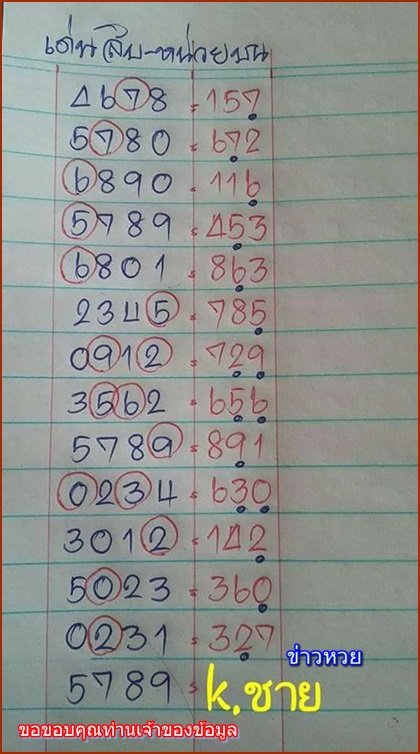 เด่นสิบ-หน่วยบน
4678 = 157
5780 = 672
6890 = 116
5789 = 453
6801 = 863
2345 = 785
0912 = 729
3562 = 656
5789 = 891
0234 = 630
3012 = 142
5023 = 360
0231 = 327
ข่าวหวย
5789 = k.ชาย
ขอขอบคุณท่านเจ้าของข้อมูล